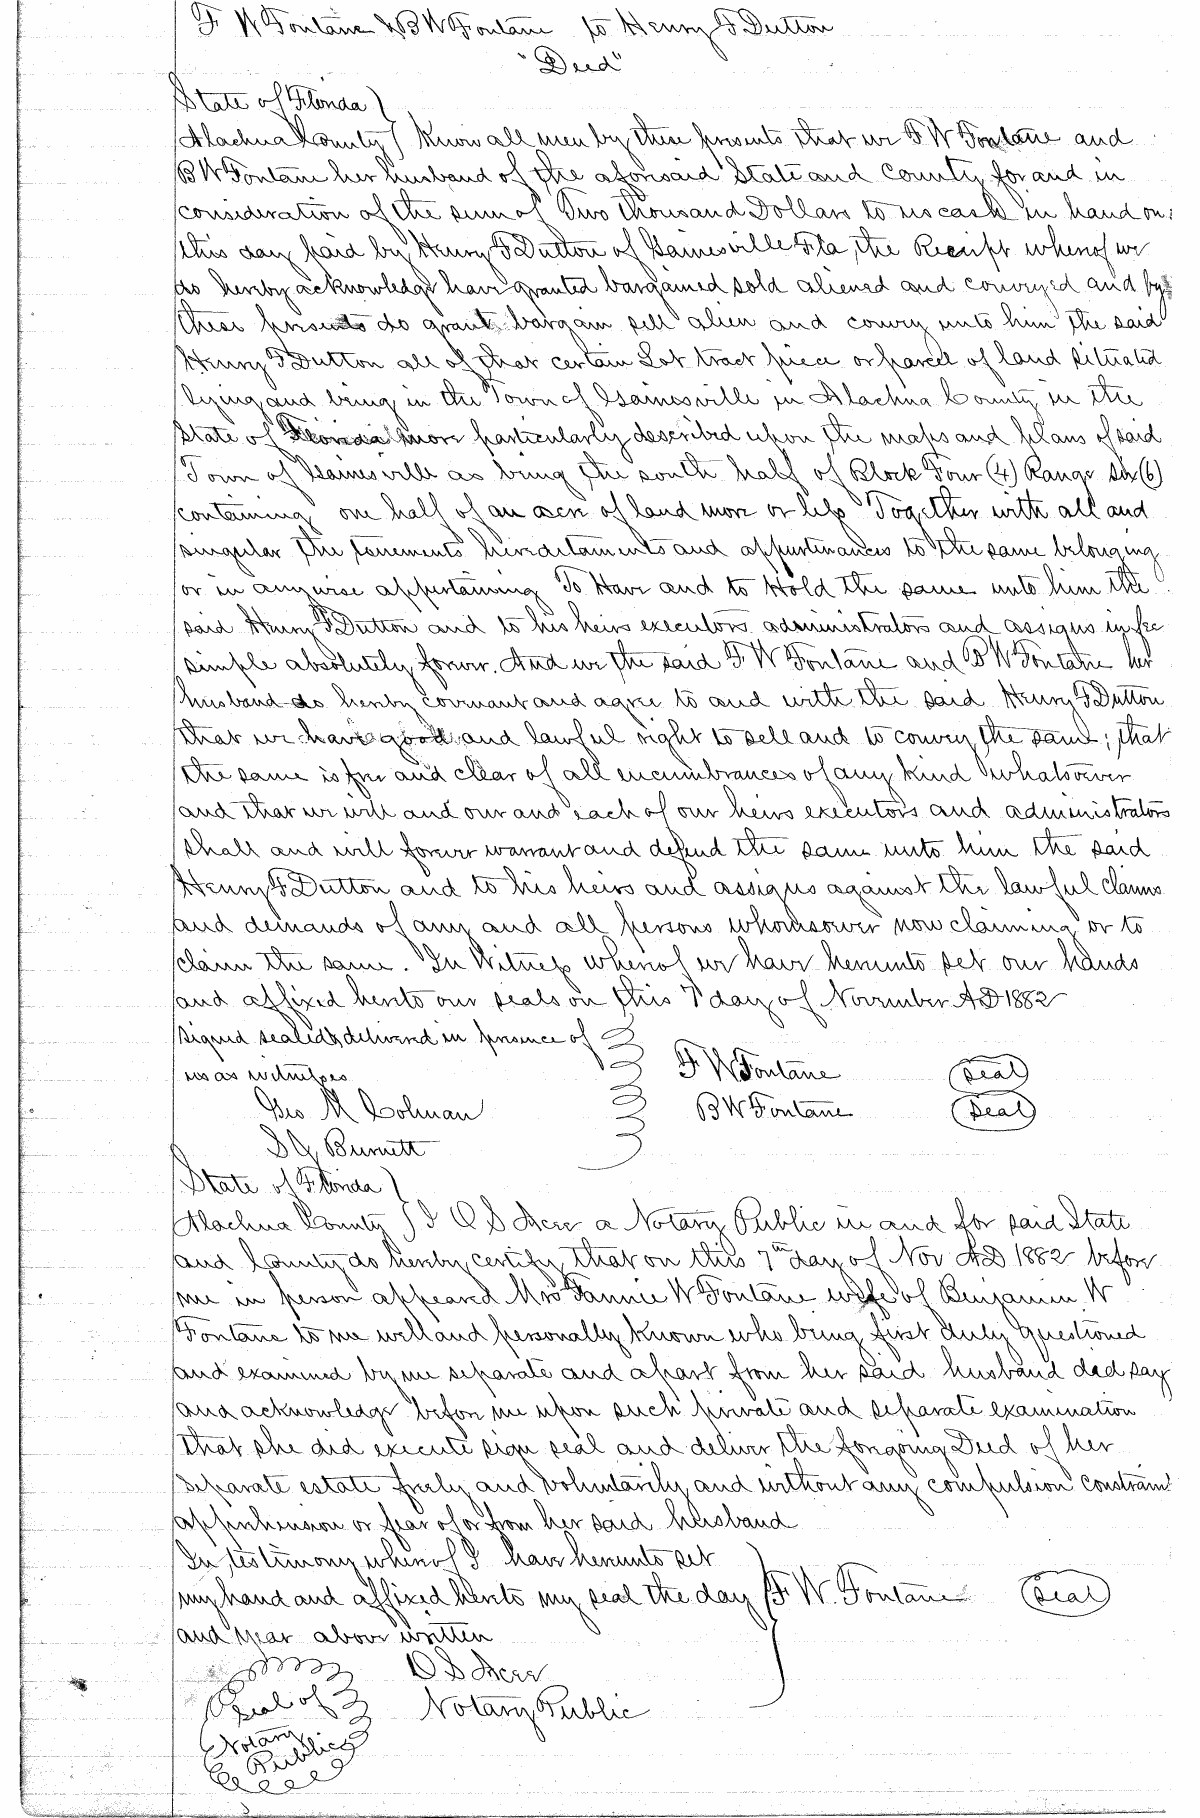 F W Fontane & B W Fontane to Henry F Dutton
"Deed"
State of Florida )
Alachua County ) Know all men by these presents that we F W Fontane and
B W Fontane her husband of the aforesaid State and County for and in
consideration of the sum of Two thousand Dollars to us cash in hand on
this day paid by Henry F Dutton of Gainesville Fla, the Receipt whereof we
do hereby acknowledge have granted bargained sold aliened and conveyed and by
these presents do grant bargain sell alien and convey unto him the said
Henry F Dutton all of that certain Lot tract piece or parcel of land situated
lying and being in the Town of Gainesville in Alachua County in the
State of Florida more particularly described upon the maps and plans of said
Town of Gainesville as being the south half of Block Four (4) Range six (6)
containing one half of an acre of land more or less Together with all and
singular the tenements hereditaments and appurtenances to the same belonging
or in anywise appertaining To Have and to Hold the same unto him the
said Henry F Dutton and to his heirs executors administrators and assigns in fee
simple absolutely forever. And we the said F W Fontane and B W Fontane her
husband do hereby covenant and agree to and with the said Henry F Dutton
that we have good and lawful right to sell and to convey the same; that
the same is free and clear of all encumbrances of any kind whatsoever
and that we will and our and each of our heirs executors and administrators
shall and will forever warrant and defend the same unto him the said
Henry F Dutton and to his heirs and assigns against the lawful claims
and demands of any and all persons whomsoever now claiming or to
claim the same. In Witness whereof we have hereunto set our hands
and affixed hereto our seals on this 7 day of November AD 1882
signed sealed & delivered in presence of
us as witnesses
F W Fontane (seal)
Geo M Colman B W Fontane (seal)
S J Burnett
State of Florida )
Alachua County ) I O S Acee a Notary Public in and for said State
and County do hereby certify that on this 7th day of Nov AD 1882 before
me in person appeared Mrs Fannie W Fontane wife of Benjamin W
Fontane to me well and personally known who being first duly questioned
and examined by me separate and apart from her said husband did say
and acknowledge before me upon such private and separate examination
that she did execute sign seal and deliver the foregoing Deed of her
separate estate freely and voluntarily and without any compulsion constraint
apprehension or fear of or from her said husband
In testimony whereof I have hereunto set
my hand and affixed hereto my seal the day F. W. Fontane (seal)
and year above written
O S Acee
Seal of Notary Public
Notary
Public